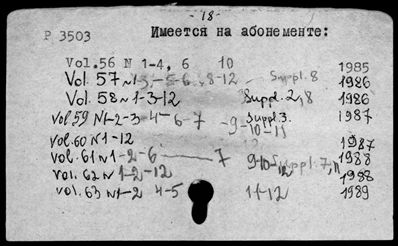 - 18 -
P 3503 Имеется на абонементе:
Vol.56 N 1-4, 6 10 1985
Vol. 57 N 1-3,-5-6,-8-12 Suppl. 8 1986
Vol. 58 N 1-3-12 Suppl. 2,8 1986
Vol 59 N1-2-3-4-6-7-9-10-11 Suppl 3. 1987
Vol. 60 N 1-12 1987
Vol. 61 N 1-2-6 7 9-10-12 Suppl. 7, 11 1988
Vol. 62 N 1-2-12 1988
Vol. 63 N1-2 4-5 11-12 1989